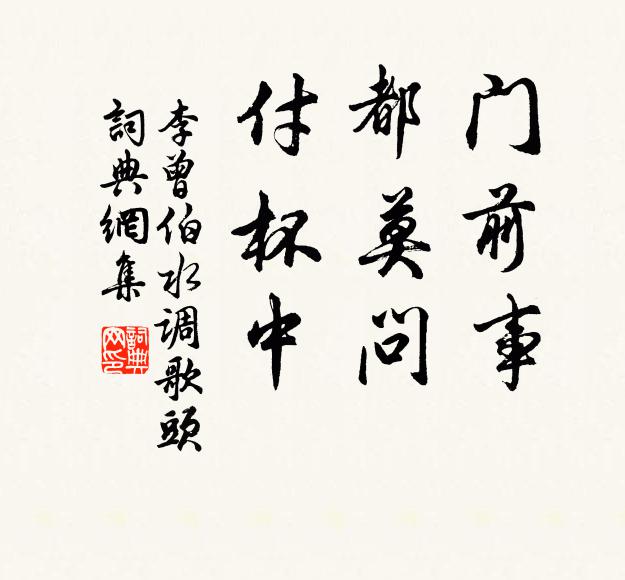 门前事
都莫问
付杯中
李曾伯水调歌頭
詞典網集
詞典网印